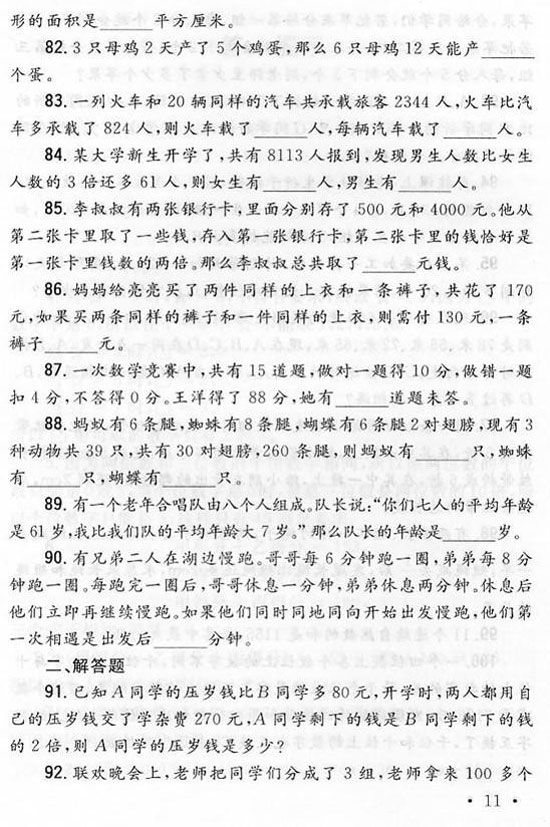 形的面积是______平方厘米。
82. 3只母鸡2天产了5个鸡蛋,那么6只母鸡12天能产______
个蛋。
83. 一列火车和20辆同样的汽车共承载旅客2344人,火车比汽
车多承载了824人,则火车载了______人,每辆汽车载了______人。
84. 某大学新生开学了,共有8113人报到,发现男生人数比女生
人数的3倍还多61人,则女生有______人,男生有______人。
85. 李叔叔有两张银行卡,里面分别存了500元和4000元。他从
第二张卡里取了一些钱,存入第一张银行卡,第二张卡里的钱恰好是
第一张卡里钱数的两倍。那么李叔叔总共取了______元钱。
86. 妈妈给亮亮买了两件同样的上衣和一条裤子,共花了170
元,如果买两条同样的裤子和一件同样的上衣,则需付130元,一条
裤子______元。
87. 一次数学竞赛中,共有15道题,做对一题得10分,做错一题
扣4分,不答得0分。王洋得了88分,她有______道题未答。
88. 蚂蚁有6条腿,蜘蛛有8条腿,蝴蝶有6条腿2对翅膀,现有3
种动物共39只,共有30对翅膀,260条腿,则蚂蚁有______只,蜘蛛
有______只,蝴蝶有______只。
89. 有一个老年合唱队由八个人组成。队长说:“你们七人的平均年龄
是61岁,我比我们队的平均年龄大7岁。”那么队长的年龄是______岁。
90. 有兄弟二人在湖边慢跑。哥哥每6分钟跑一圈,弟弟每8分
钟跑一圈。每跑完一圈后,哥哥休息一分钟,弟弟休息两分钟。休息后
他们立即再继续慢跑。如果他们同时同地同向开始出发慢跑,他们第
一次相遇是出发后______分钟。
二、解答题
91. 已知A同学的压岁钱比B同学多80元,开学时,两人都用自
己的压岁钱交了学杂费270元,A同学剩下的钱是B同学剩下的钱
的2倍,则A同学的压岁钱是多少?
92. 联欢晚会上,老师把同学们分成了3组,老师拿来100多个
· 11 ·